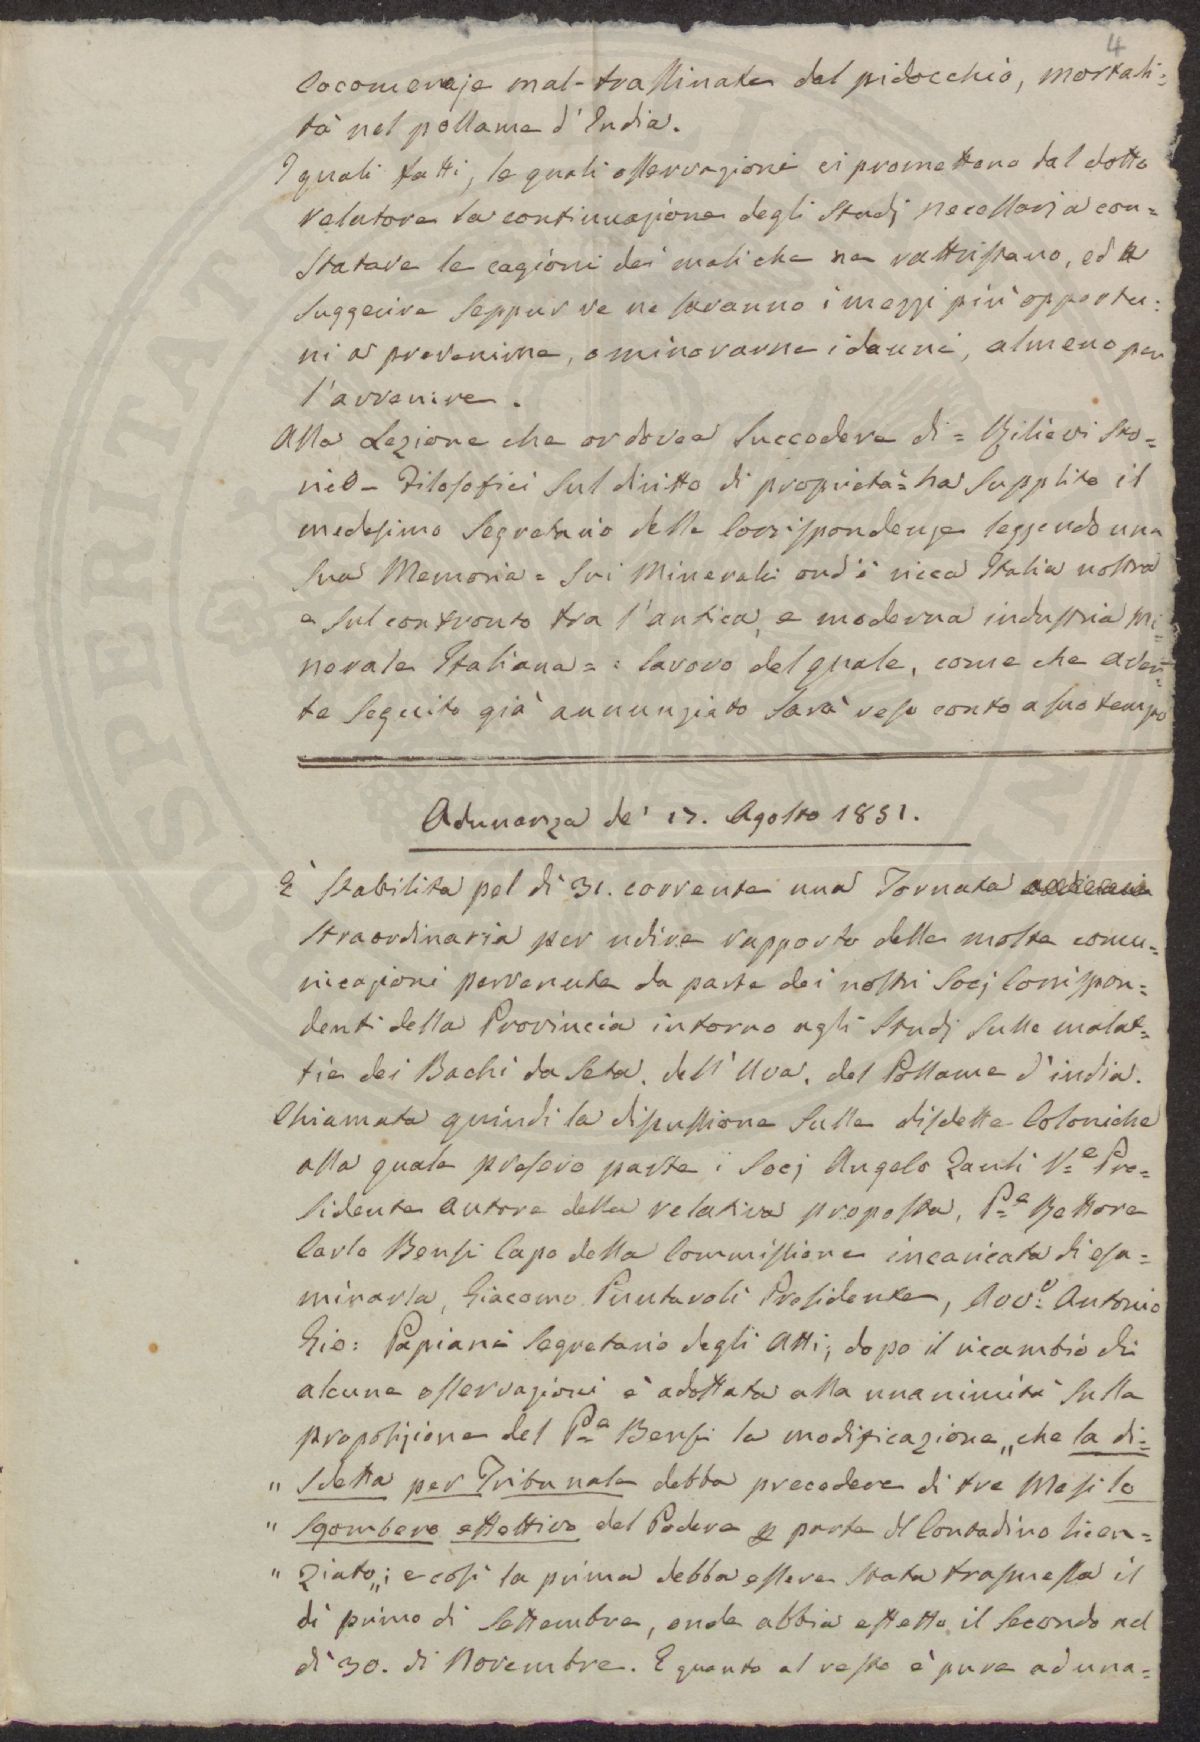 4
cocomeraje mal-trassinate dal pidocchio, mortali=
tà nel pollame d'India.
I quali fatti, le quali osservazioni ci promettono dal dotto
relatore la continuazione degli Studj necessarj a con=
statare le cagioni dei mali che ne rattristano, ed a
suggerire seppur ve ne saranno i mezzi più opportu=
ni a prevenirne, o minorarne i danni, almeno per
l'avvenire.
Alla Lezione che or dovea succedere di = Rilievi Sto=
rico-Filosofici sul diritto di proprietà = ha supplito il
medesimo Segretario delle Corrispondenze leggendo una
sua Memoria = Sui Minerali ond'è ricca Italia nostra
e sul confronto tra l'antica, e moderna industria Mi=
nerale Italiana = : lavoro del quale, come che aven=
te seguito già annunziato sarà reso conto a suo tempo
Adunanza de' 17. Agosto 1851.
È stabilita pel dì 31. corrente una Tornata
straordinaria per udire rapporto delle molte comu=
nicazioni pervenute da parte dei nostri Socj Corrispon=
denti della Provincia intorno agli Studj sulle malat=
tie dei Bachi da Seta, dell'Uva, del Pollame d'india.
Chiamata quindi la discussione sulle disdette Coloniche
alla quale presero parte i Socj Angelo Zauli V.e Pre=
sidente autore della relativa proposta, P.e Rettore
Carlo Bensi Capo della Commissione incaricata di esa=
minarla, Giacomo Puntaroli Presidente, Avv.o Antonio
Gio: Papiani Segretario degli Atti; dopo il ricambio di
alcune osservazioni è adottata alla unanimità sulla
proposizione del P.e Bensi la modificazione „ che la di=
" sdetta per Tribunale debba precedere di tre Mesi lo
" sgombero effettivo del Podere p parte del Contadino licen=
" ziato „; e così la prima debba essere stata trasmessa il
dì primo di Settembre, onde abbia effetto il secondo nel
dì 30. di Novembre. E quanto al resto è pure ad una=